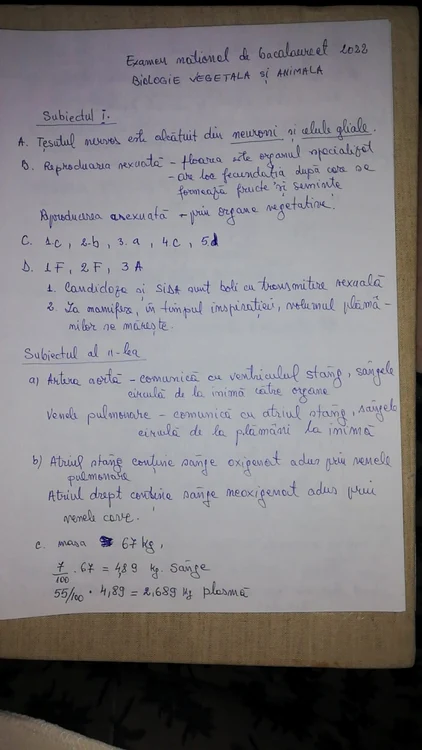 Examen național de bacalaureat 2022
BIOLOGIE VEGETALA și ANIMALA
Subiectul I.
A. Țesutul nervos este alcătuit din neuroni și celule gliale.
B. Reproducerea sexuată - floarea este organul specializat
- are loc fecundația după care se
formează fructe și semințe
Reproducerea asexuată - prin organe vegetative
C. 1c, 2.b, 3.a, 4c, 5d
D. 1F, 2F, 3A
1. Candidoza și SIDA sunt boli cu transmitere sexuală
2. La mamifere, în timpul inspirației, volumul plămâ-
nilor se mărește.
Subiectul al II-lea
a) Artera aortă - comunică cu ventriculul stâng, sângele
circulă de la inimă către organe
Venele pulmonare - comunică cu atriul stâng, sângele
circulă de la plămâni la inimă
b) Atriul stâng conține sânge oxigenat adus prin venele
pulmonare
Atriul drept conține sânge neoxigenat adus prin
venele cave.
c. masa 67 kg,
7/100 · 67 = 4,89 kg. sânge
55/100 · 4,89 = 2,689 kg plasmă